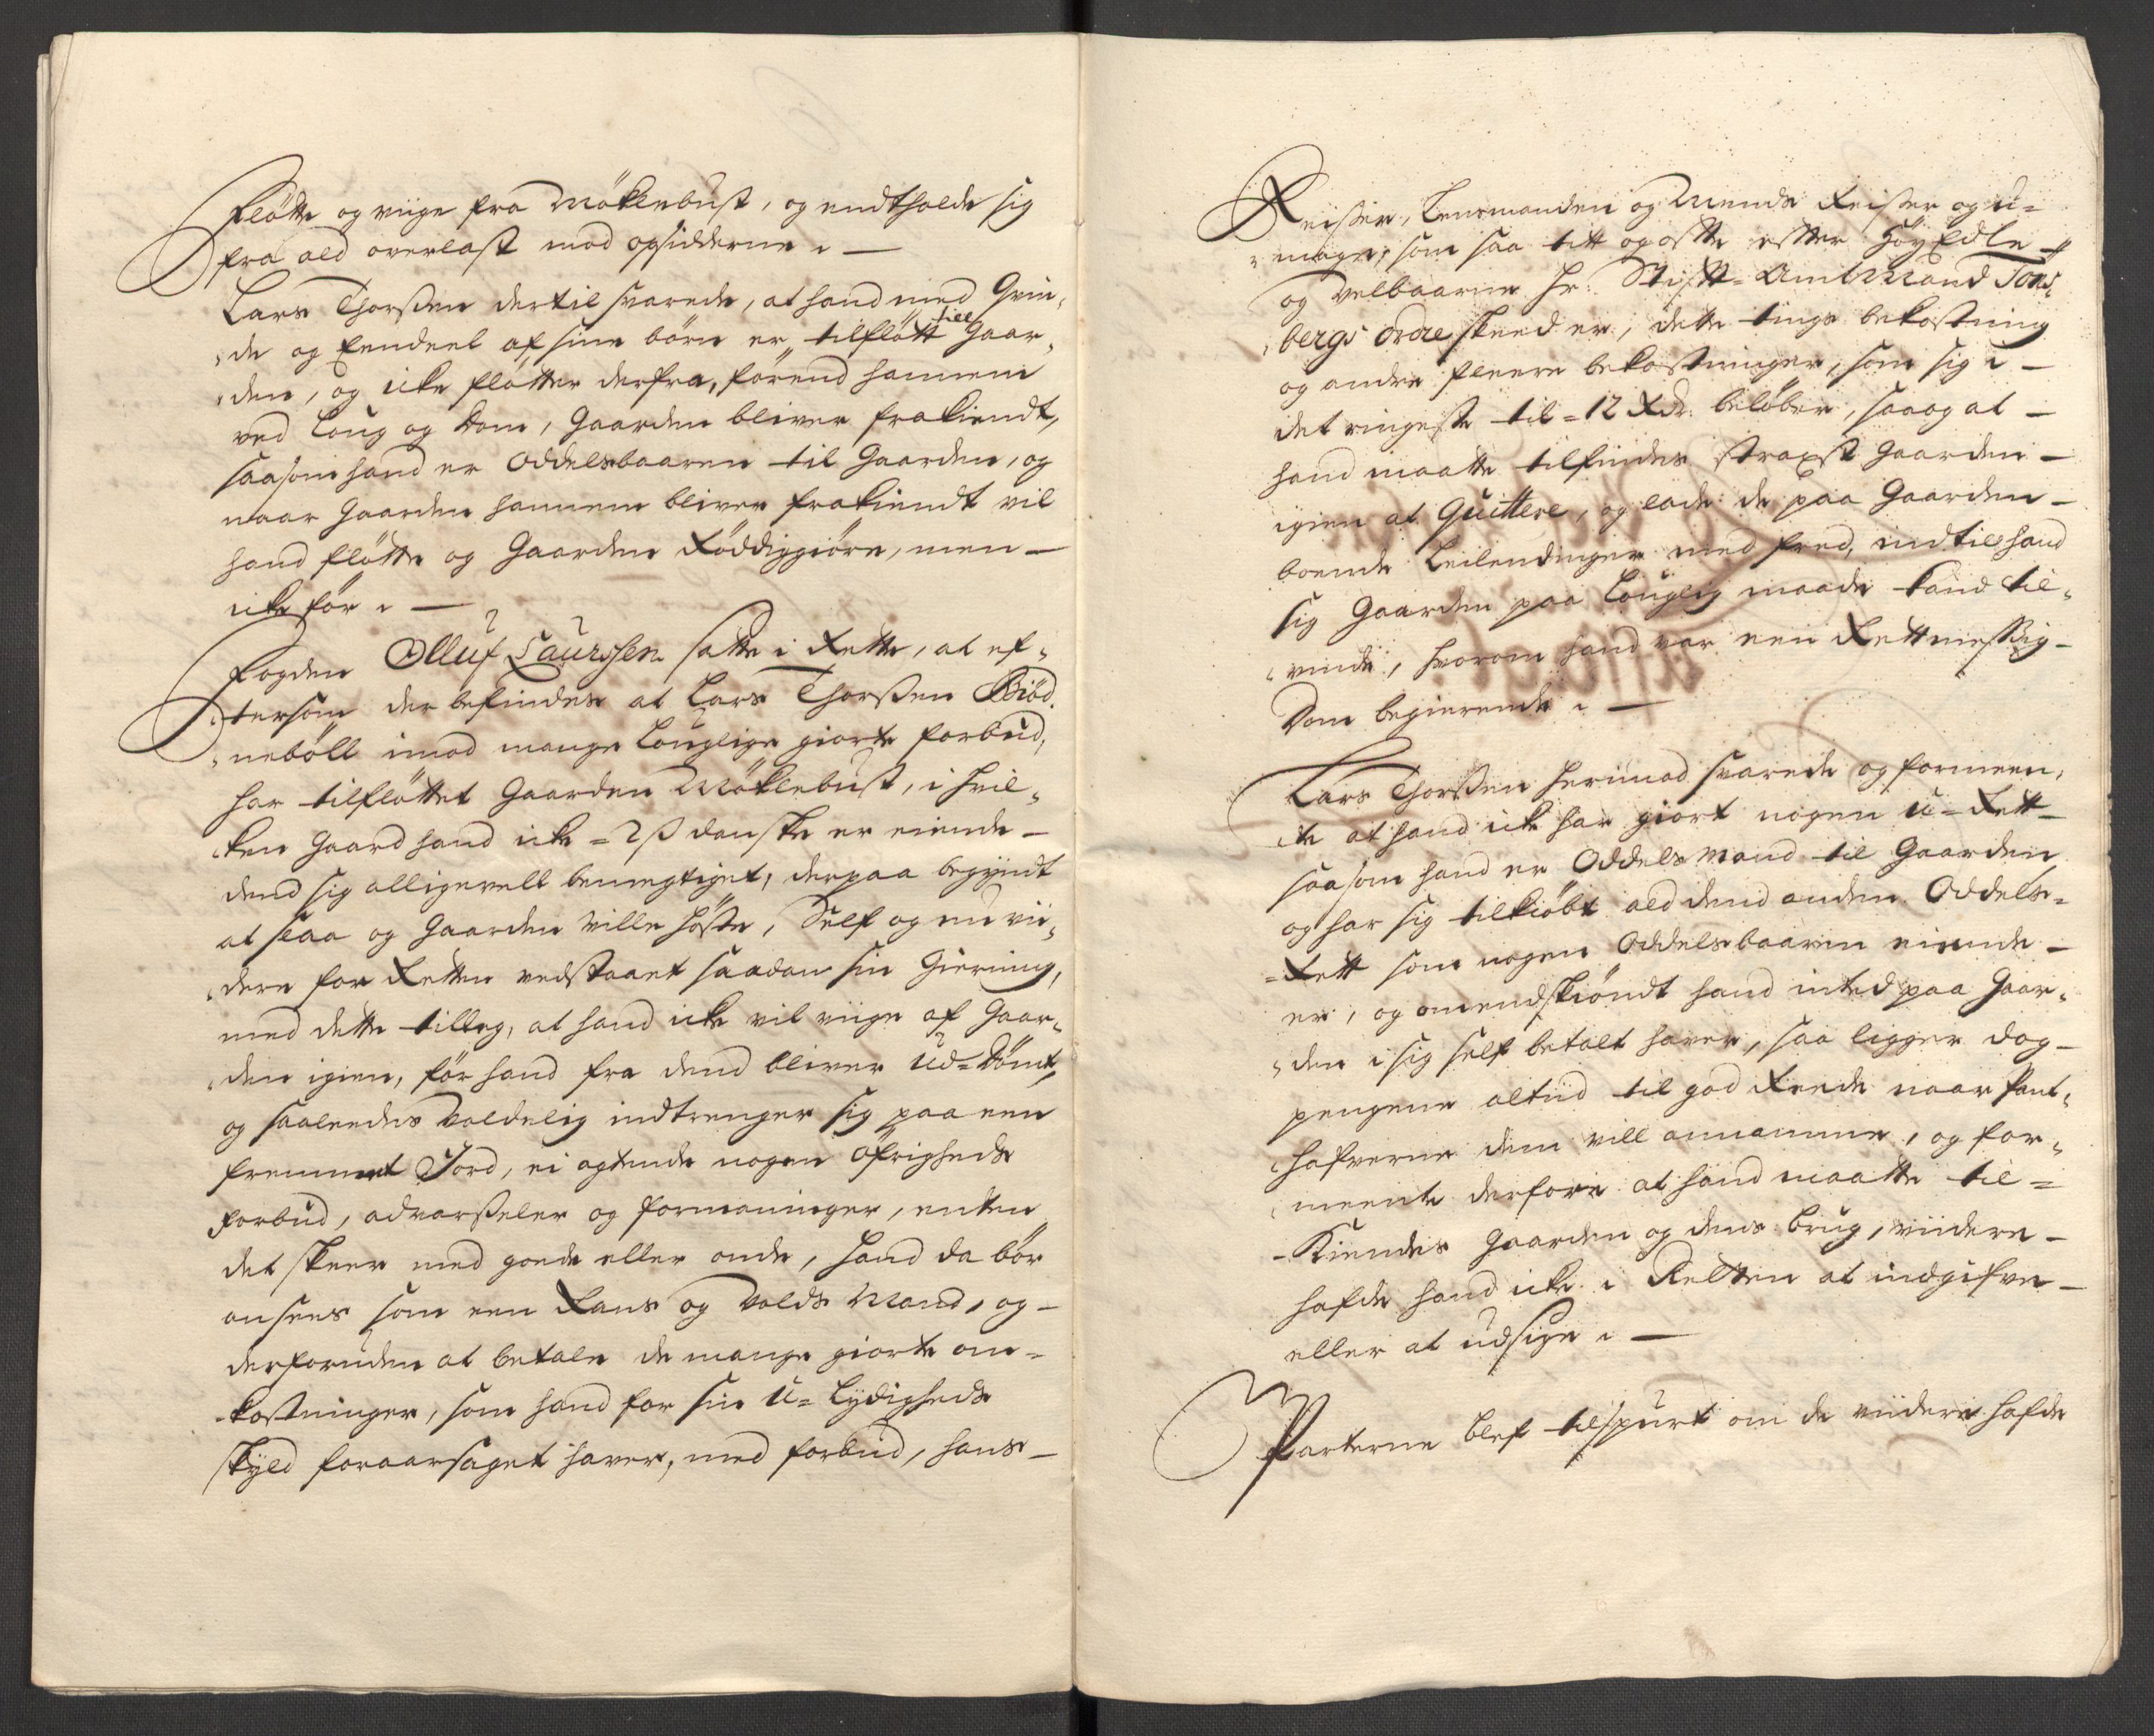 Fløtte og viige fra Møklebust, og endtholde sig
fra ald overlast mod opsidderne.
Lars Thorßen dertil svarede, at hand med Qvin-
de og Eendeel af sine børn er tilfløtt till Gaar-
den, og icke fløtter derfra, førend hannem
ved Loug og Dom, Gaarden bliver frakiendt,
saasom hand er Oddelsbaaren til Gaarden, og
naar Gaarden hannem bliver frakiendt vil
hand fløtte og Gaarden Røddiggiøre, men
icke før.
Fogden Olluf Laurssen satte i Rette, at ef-
tersom der befindes at Lars Thorßen Biød-
nebøll imod mange Louglige giorte forbud,
har tilfløttet Gaarden Møklebust, i hvil-
ken Gaard hand icke = 2 ß danske er eiende
dend sig alligevell bemegtiget, derpaa begyndt
at slaa og Gaarden ville høste, Self og end vii-
dere for Retten vedstaaet saadan sin Gierning,
med dette tilleg, at hand icke vil viige af Gaar-
den igien, før hand fra dend bliver ud-dømt,
og saaledes Voldelig indtrenger sig paa een
fremmet Jord, ei agtende nogen Øfrigheds
forbud, advarßeler og formaninger, enten
det skeer med goede eller onde, hand da bør
ansees som een Rans og Volds Mand, og
derforuden at betale de mange giorte om-
kostninger, som hand for sin U-Lydigheds
skyld foraarsaget haver, med forbud, hans
Reißer, Lensmanden og Mends Reißer og u-
mage, som saa titt og ofte efter HøyEdle
og Velbaarne Hr. Stift-AmtMand Tøns-
bergs Ordre skeed er, dette tings bekostning
og andre fleere bekostninger, som sig i
det ringeste til = 12 Rdr. beløber, saa og at
hand maatte tilfindes straxst Gaarden
igien at Quittere, og lade de paa Gaarden
boende Leilendinger med fred, indtill hand
sig Gaarden paa Louglig maade kand til-
vinde, hvorom hand var een Rettmessig
Dom begierende.
Lars Thorßen herimod svarede og formeen-
te at hand icke har giort nogen U-Rett
saasom hand er Oddels Mand til Gaarden
og har sig tilkiøbt ald dend anden Oddels-
Rett som nogen Oddelsbaaren eiende
er, og omendskiøndt hand inted paa Gaar-
den i sig self betalt haver, saa ligger dog
pengene altiid til god Rede naar Pant-
hafverne dem vill annamme, og for-
meente derfore at hand maatte til-
Kiendes Gaarden og dens brug, viidere
hafde hand icke i Retten at indgifve
eller at udsige.
Parterne blef tilspurt om de viidere hafde